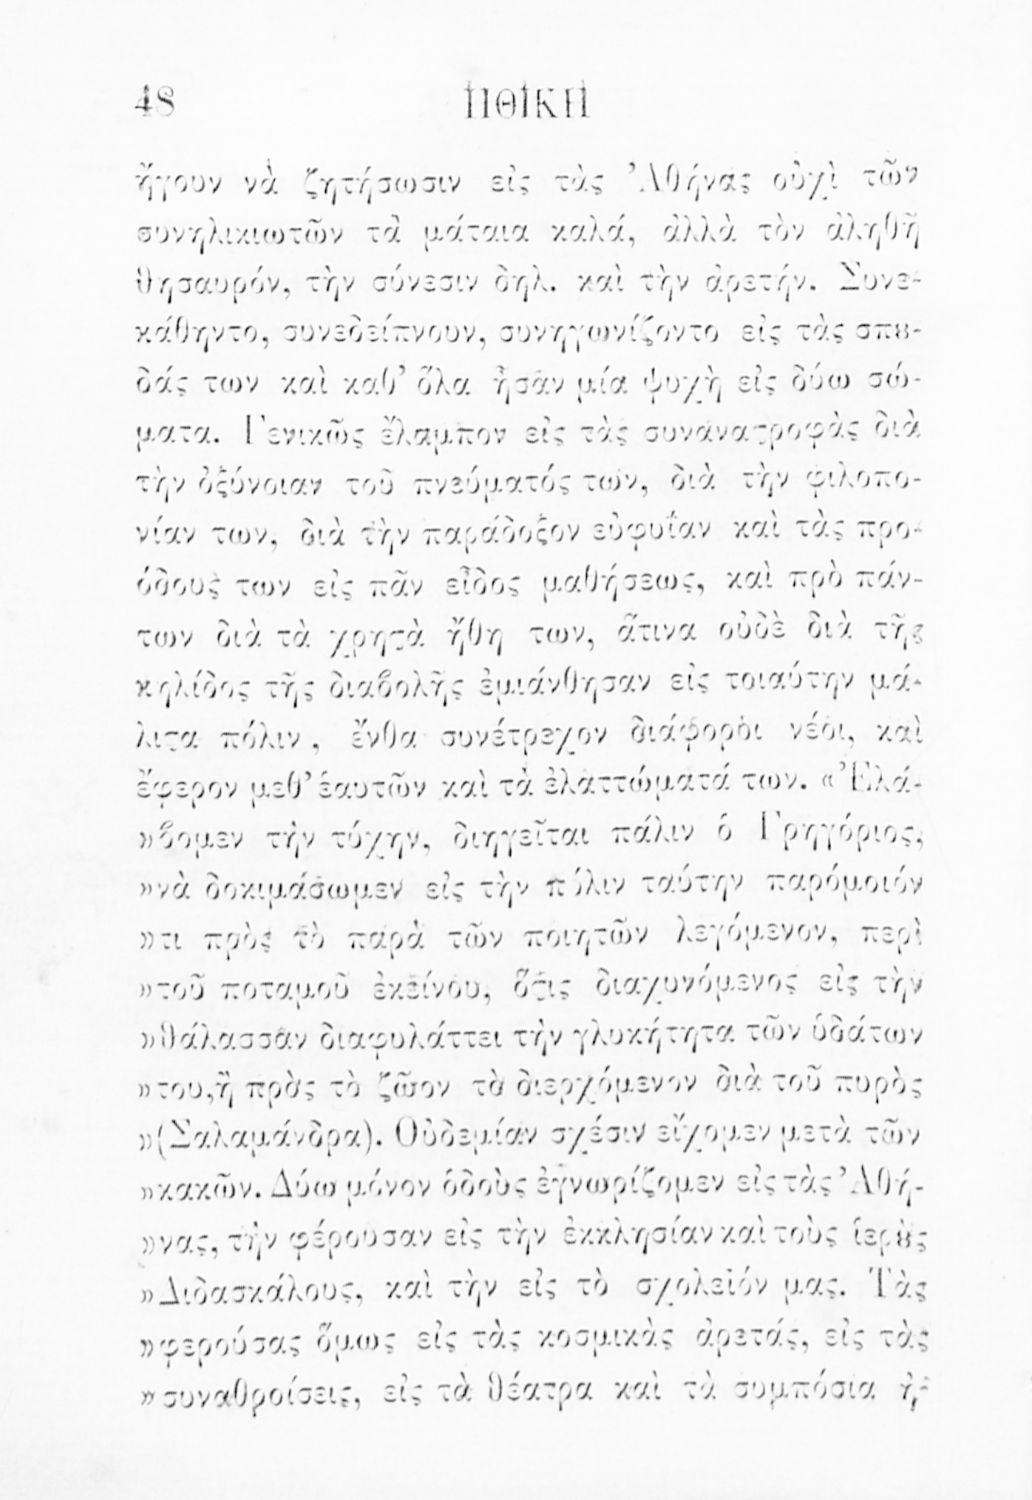 48 ἨΘΙΚΗ
ἤγουν νὰ ζητήσωσιν εἰς τὰς Ἀθήνας οὐχὶ τῶν
συνηλικιωτῶν τὰ μάταια καλά, ἀλλὰ τὸν ἀληθῆ
θησαυρόν, τὴν σύνεσιν δηλ. καὶ τὴν ἀρετήν. Συνε-
κάθηντο, συνεδείπνουν, συνηγωνίζοντο εἰς τὰς σπȣ-
δάς των καὶ καθ’ ὅλα ἦσαν μία ψυχὴ εἰς δύω σώ-
ματα. Γενικῶς ἔλαμπον εἰς τὰς συναναϛροφὰς διὰ
τὴν ὀξύνοιαν τοῦ πνεύματός των, διὰ τὴν φιλοπο-
νίαν των, διὰ τὴν παράδοξον εὐφυΐαν καὶ τὰς προ-
όδους των εἰς πᾶν εἶδος μαθήσεως, καὶ πρὸ πάν-
των διὰ τὰ χρηϛὰ ἤθη των, ἅτινα οὐδὲ διὰ τῆς
κηλίδος τῆς διαβολῆς ἐμιάνθησαν εἰς τοιαύτην μά-
λιϛα πόλιν, ἔνθα συνέτρεχον διάφοροι νέοι, καὶ
ἔφερον μεθ’ ἑαυτῶν καὶ τὰ ἐλαττώματά των. «Ἐλά-
»βομεν τὴν τύχην, διηγεῖται πάλιν ὁ Γρηγόριος,
»νὰ δοκιμάσωμεν εἰς τὴν πόλιν ταύτην παρόμοιόν
»τι πρὸς τὸ παρὰ τῶν ποιητῶν λεγόμενον, περὶ
»τοῦ ποταμοῦ ἐκείνου, ὅϛις διαχυνόμενος εἰς τὴν
»θάλασσαν διαφυλάττει τὴν γλυκήτητα τῶν ὑδάτων
»του, ἢ πρὸς τὸ ζῶον τὸ διερχόμενον διὰ τοῦ πυρὸς
»(Σαλαμάνδρα). Οὐδεμίαν σχέσιν εἴχομεν μετὰ τῶν
»κακῶν. Δύω μόνον ὁδοὺς ἐγνωρίζομεν εἰς τὰς Ἀθή-
»νας, τὴν φέρουσαν εἰς τὴν ἐκκλησίαν καὶ τοὺς ἱερȣ̀ς
»Διδασκάλους, καὶ τὴν εἰς τὸ σχολεῖόν μας. Τὰς
»φερούσας ὅμως εἰς τὰς κοσμικὰς ἀρετάς, εἰς τὰς
»συναθροίσεις, εἰς τὰ θέατρα καὶ τὰ συμπόσια ἠ-